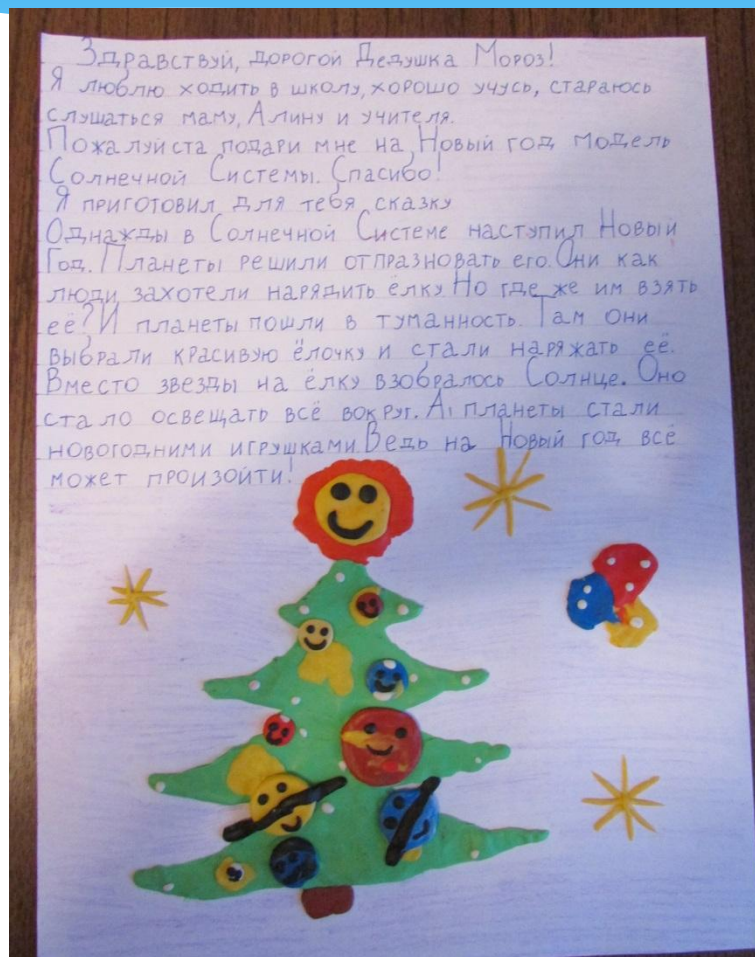 Здравствуй, дорогой Дедушка Мороз!
Я люблю ходить в школу, хорошо учусь, стараюсь
слушаться маму, Алину и учителя.
Пожалуйста подари мне на Новый год модель
Солнечной Системы. Спасибо!
Я приготовил для тебя сказку
Однажды в Солнечной Системе наступил Новый
Год. Планеты решили отпразновать его. Они как
люди захотели нарядить ёлку. Но где же им взять
её? И планеты пошли в туманность. Там они
выбрали красивую ёлочку и стали наряжать её.
Вместо звезды на ёлку взобралось Солнце. Оно
стало освещать всё вокруг. А планеты стали
новогодними игрушками. Ведь на Новый год всё
может произойти!